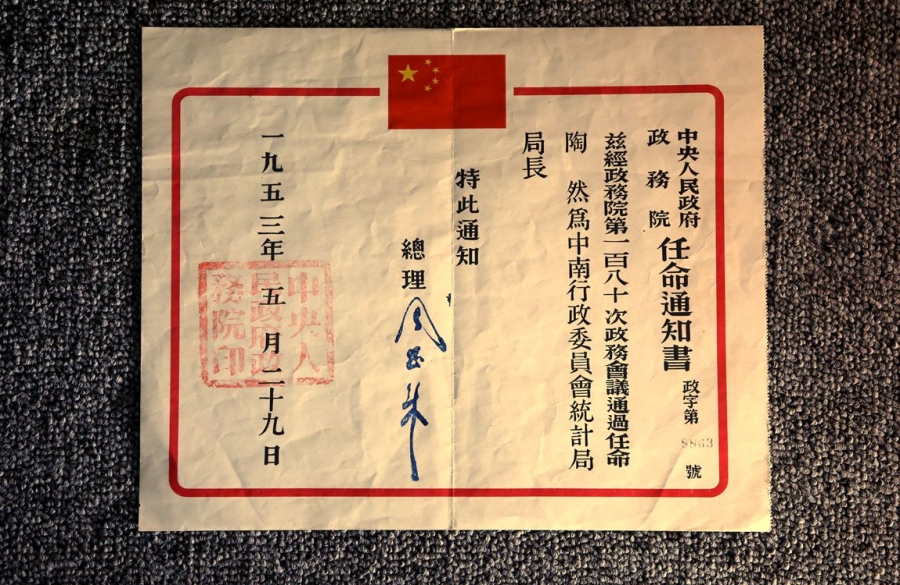 中央人民政府
政務院
任命通知書
政字第9863號
兹經政務院第一百八十次政務會議通過任命
陶然爲中南行政委員會統計局
局長
特此通知
總理 周恩来
一九五三年五月二十九日
中央人民政府政務院印